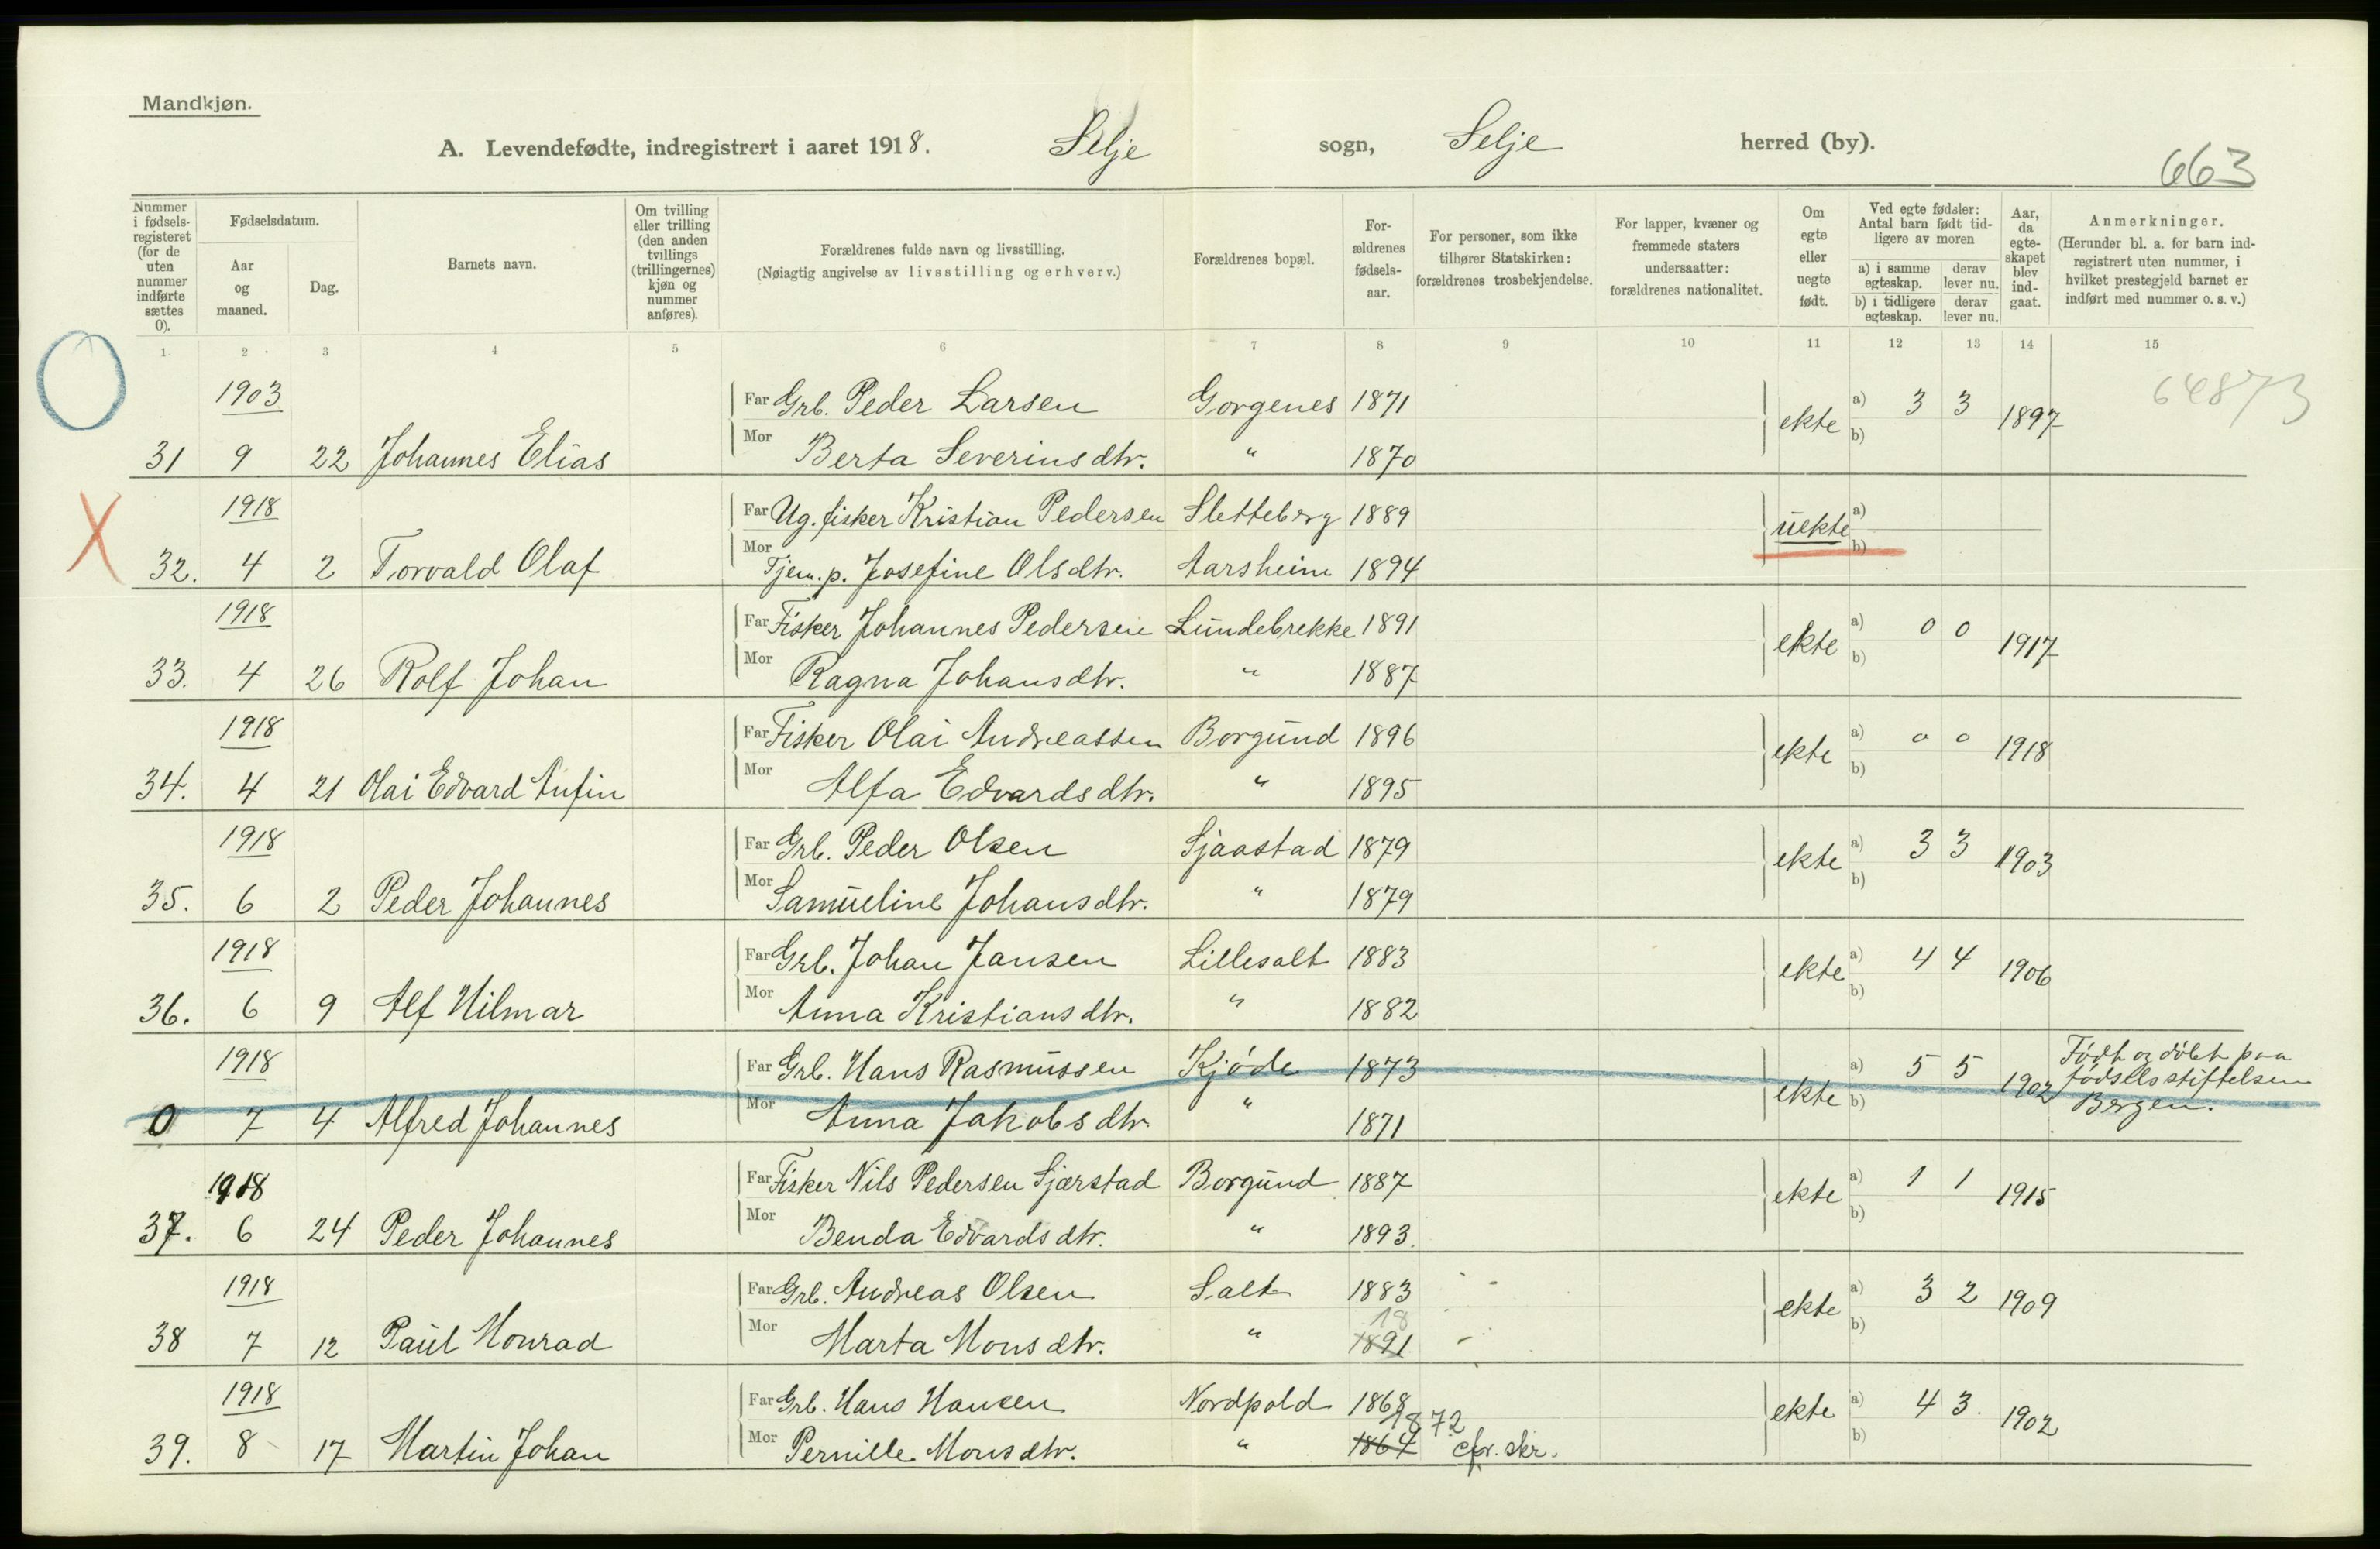 Mandkjøn.
A. Levendefødte, indregistrert i aaret 1918. Selje sogn, Selje herred (by).
663
Nummer i fødsels-registeret (for de uten nummer indførte sættes 0).
Fødselsdatum.
Aar og maaned.
Dag.
Barnets navn.
Om tvilling eller trilling (den anden tvillings (trillingernes) kjøn og nummer anføres).
Forældrenes fulde navn og livsstilling.
(Nøiagtig angivelse av livsstilling og erhverv.)
Forældrenes bopæl.
For-ældrenes fødsels-aar.
For personer, som ikke tilhører Statskirken: forældrenes trosbekjendelse.
For lapper, kvæner og fremmede staters undersaatter: forældrenes nationalitet.
Om egte eller uegte født.
Ved egte fødsler: Antal barn født tid-ligere av moren
a) i samme egteskap. derav lever nu.
b) i tidligere egteskap. derav lever nu.
Aar, da egte-skapet blev ind-gaat.
Anmerkninger.
(Herunder bl. a. for barn ind-registrert uten nummer, i hvilket prestegjeld barnet er indført med nummer o. s. v.)
1. 2 3 4 5 6 7 8 9 10 11 12 13 14 15
1903 Far Grb. Peder Larsen Gorgenes 1871 ekte a) 3 3 1897 64873
31 9 22 Johannes Elias Mor Berta Severinsdtr. " 1870 b)
1918 Far Ug. fisker Kristian Pedersen Sletteberg 1889 uekte a)
32. 4 2 Torvald Olaf Mor Tjen. p. Josefine Olsdtr. Aarsheim 1894 b)
1918 Far Fisker Johannes Pedersen Lundebrekke 1891 ekte a) 0 0 1917
33. 4 26 Rolf Johan Mor Ragna Johansdtr. " 1887 b)
1918 Far Fisker Olai Andreassen Borgund 1896 ekte a) 0 0 1918
34. 4 21 Olai Edvard Anfin Mor Alfa Edvardsdtr. " 1895 b)
1918 Far Grb. Peder Olsen Sjaastad 1879 ekte a) 3 3 1903
35. 6 2 Peder Johannes Mor Samueline Johansdtr. " 1879 b)
1918 Far Grb. Johan Jansen Lillesalt 1883 ekte a) 4 4 1906
36. 6 9 Alf Hilmar Mor Anna Kristiansdtr. " 1882 b)
1918 Far Grb. Hans Rasmussen Kjöde 1873 ekte a) 5 5 1902 Födt og döbt paa födselsstiftelsen Bergen.
0 7 4 Alfred Johannes Mor Anna Jakobsdtr. " 1871 b)
1918 Far Fisker Nils Pedersen Sjærstad Borgund 1887 ekte a) 1 1 1915
37. 6 24 Peder Johannes Mor Benda Edvardsdtr. " 1893. b)
1918 Far Grb. Andreas Olsen Salt 1883 ekte a) 3 2 1909
18
38 7 12 Paul Monrad Mor Marta Monsdtr. " 1891 b)
1918 Far Grb. Hans Hansen Nordpold 1868 ekte a) 4 3. 1902
1872
39. 8 17 Martin Johan Mor Pernille Monsdtr. " 1864 cfr. skr. b)